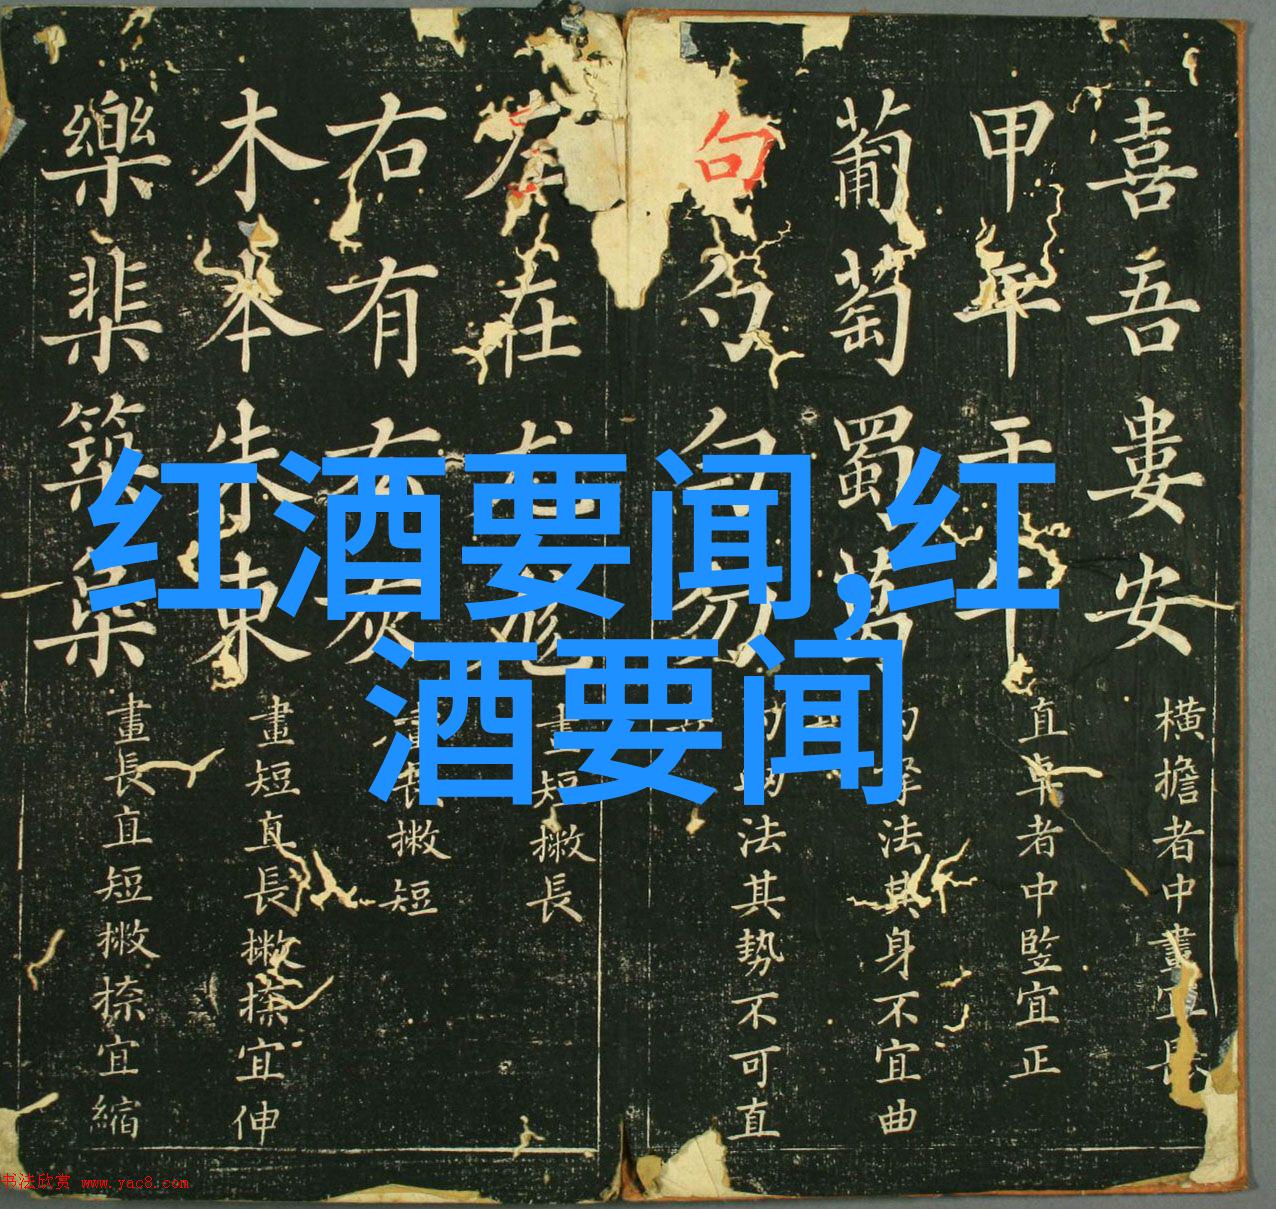 红酒要闻,红
酒要闻
喜吾婁安
橫擔者中畫宜長
甲平干
直卓者中竪宜正
葡萄蜀
法其身不宜曲
句勺匀勿
法其勢不可直
在
畫短撇長
右有灰
長撇短
木本朱東
畫短直長撇捺宜伸
樂棐築
畫長直短撇捺宜縮
书法欣赏 www.yac8.com